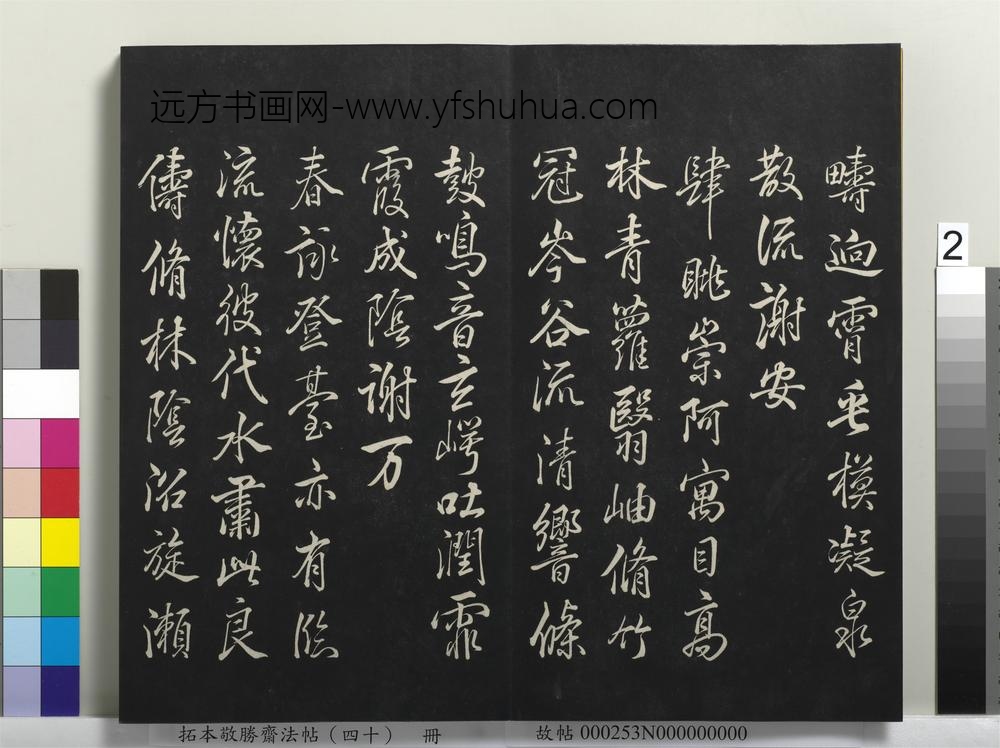 远方书画网-www.yfshuhua.com
疇逈霄垂模凝泉
散流謝安
肆眺崇阿寓目高
林青蘿翳岫脩竹
冠岑谷流清響條
鼓鳴音玄崿吐潤霏
霞成陰謝万
春詠登臺亦有臨
流懷彼代水肅此良
儔脩林陰沼旋瀨
2
拓本敬勝齋法帖（四十） 冊 故帖 000253N000000000